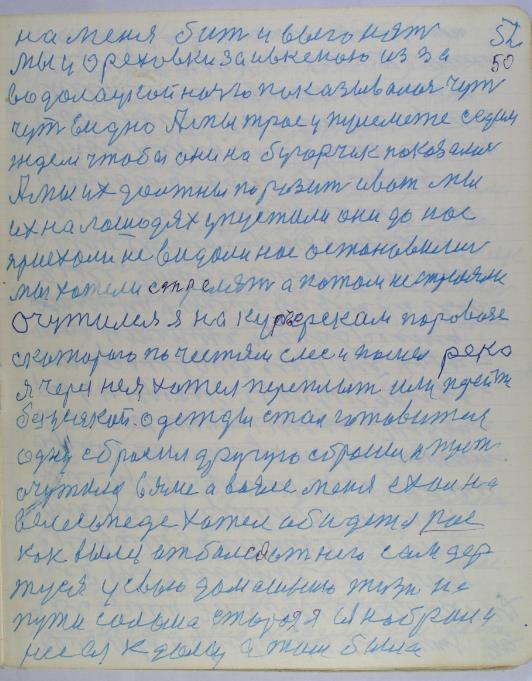 на меня бит и выгонят 52
мы у Ореховки за ивкекою из за 50
водолацкой ного показывалоя чут
чут видно А мы трое у пулемёте седим
ждем чтобы они на бугорчик показалия
А мы их должны поразит ивот мы
их на лошодях упустили они до нас
приехали не видали нас остановилис
мы хотели стрелят а потом не стреляли
очутился я на курьерскам поровозе
скоторого по честям слес и пошел река
я через нея хотел переплыт или перейти
без всякой одежды стал готовится
одну сбросил другую сбросил и тут
очутилс в яме а возле меня ехал на
велесепеде хотел обидет рас
как вылез отбалсяот него сам дер
туся у свою домашнию жизн на
пути салома старая я набрал и
несся к дому а там была